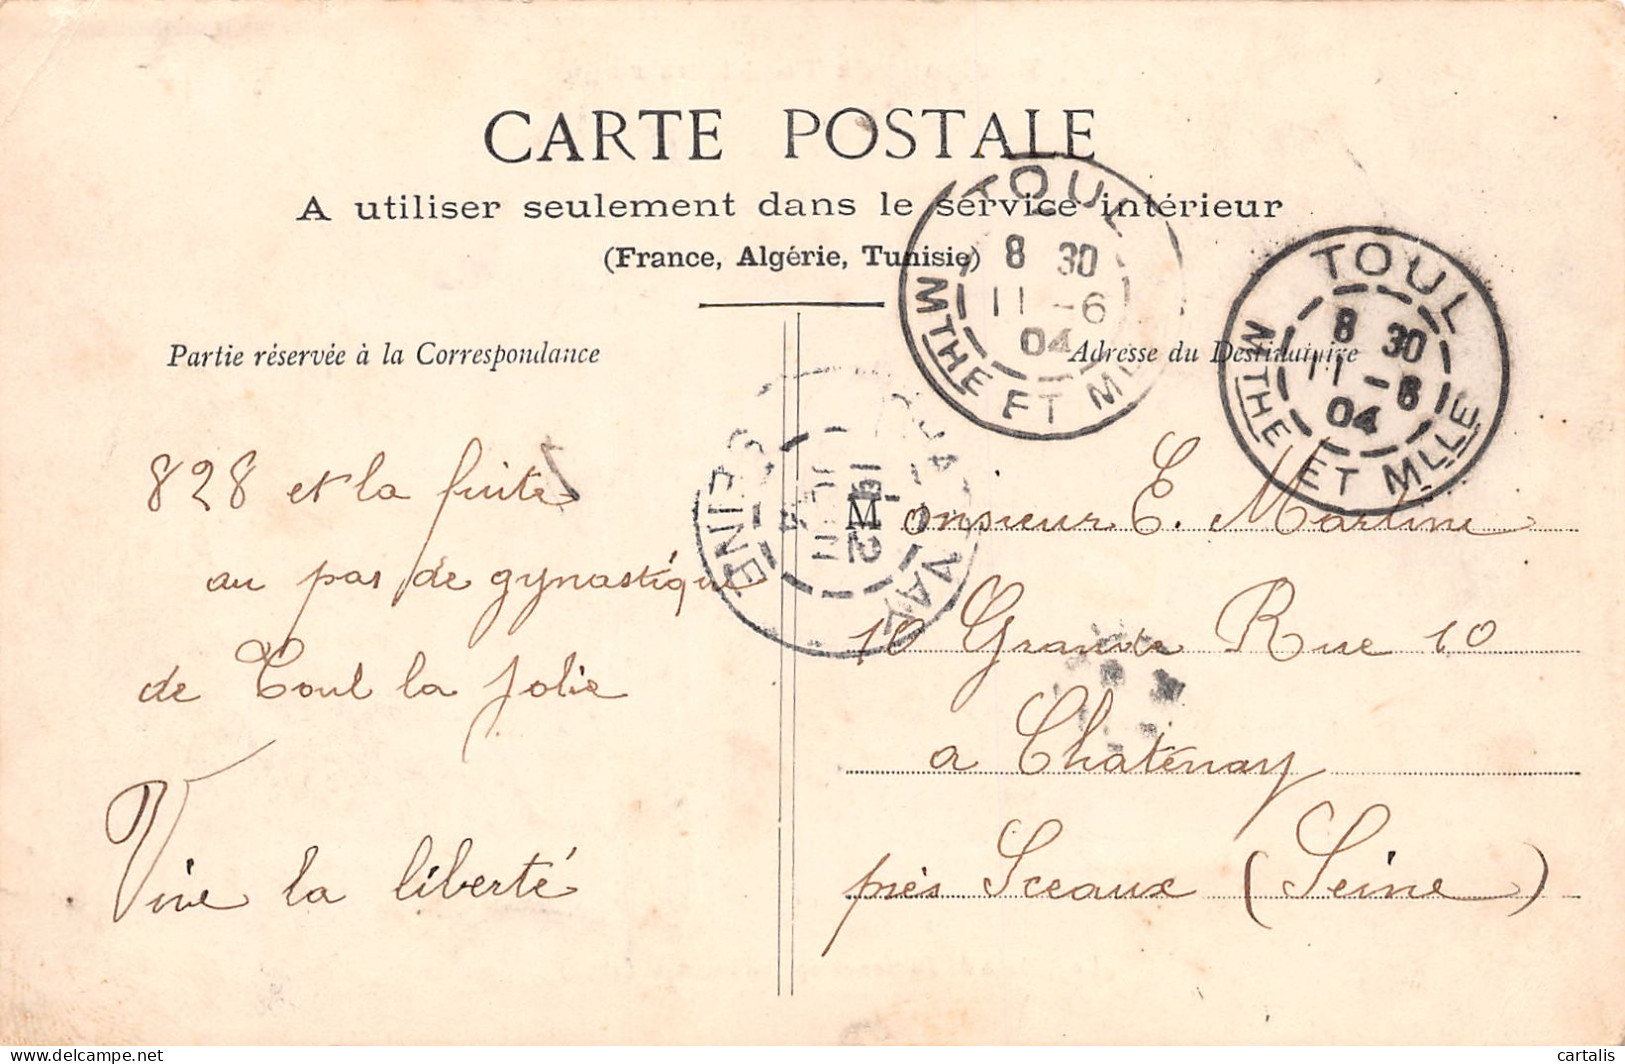 CARTE POSTALE
A utiliser seulement dans le service intérieur
(France, Algérie, Tunisie)
TOUL
8 30
11 -6
04
MTHE ET M
TOUL
8 30
11 -6
04
MTHE ET MLLE
Partie réservée à la Correspondance
Adresse du Destinataire
828 et la fuite
au pas de gynastique
de Toul la jolie
Vive la liberté
SEINE
Monsieur E. Martine
10 Grande Rue 10
a Chatenay
près Sceaux (Seine)
cartalis
delcampe.net